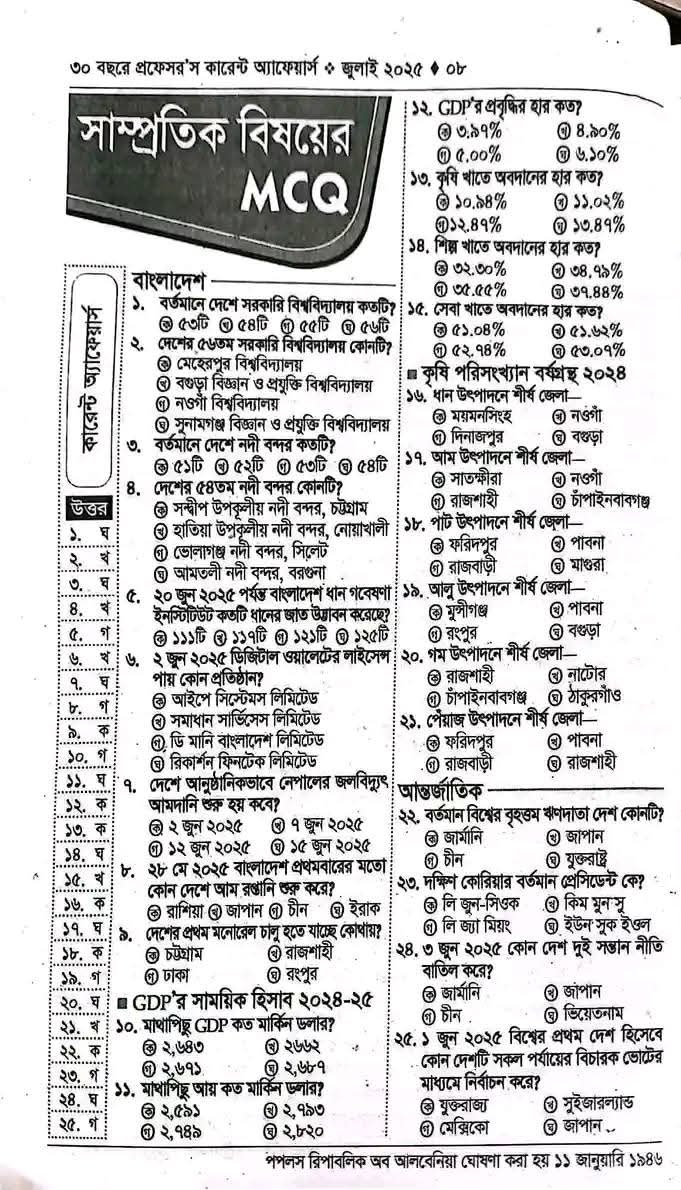 ৩০ বছরে প্রফেসর'স কারেন্ট অ্যাফেয়ার্স ❖ জুলাই ২০২৫ ♦ ০৮
সাম্প্রতিক বিষয়ের
MCQ
কারেন্ট অ্যাফেয়ার্স
উত্তর
১. ঘ
২. খ
৩. ঘ
৪. খ
৫. গ
৬. খ
৭. ঘ
৮. গ
৯. ক
১০. গ
১১. ঘ
১২. ক
১৩. ক
১৪. ঘ
১৫. খ
১৬. ক
১৭. ঘ
১৮. ক
১৯. গ
২০. ঘ
২১. খ
২২. ক
২৩. গ
২৪. ঘ
২৫. গ
বাংলাদেশ
১. বর্তমানে দেশে সরকারি বিশ্ববিদ্যালয় কতটি?
ক ৫৩টি খ ৫৪টি গ ৫৫টি ঘ ৫৬টি
২. দেশের ৫৬তম সরকারি বিশ্ববিদ্যালয় কোনটি?
ক মেহেরপুর বিশ্ববিদ্যালয়
খ বগুড়া বিজ্ঞান ও প্রযুক্তি বিশ্ববিদ্যালয়
গ নওগাঁ বিশ্ববিদ্যালয়
ঘ সুনামগঞ্জ বিজ্ঞান ও প্রযুক্তি বিশ্ববিদ্যালয়
৩. বর্তমানে দেশে নদী বন্দর কতটি?
ক ৫১টি খ ৫২টি গ ৫৩টি ঘ ৫৪টি
৪. দেশের ৫৪তম নদী বন্দর কোনটি?
ক সন্দ্বীপ উপকূলীয় নদী বন্দর, চট্টগ্রাম
খ হাতিয়া উপকূলীয় নদী বন্দর, নোয়াখালী
গ ভোলাগঞ্জ নদী বন্দর, সিলেট
ঘ আমতলী নদী বন্দর, বরগুনা
৫. ২০ জুন ২০২৫ পর্যন্ত বাংলাদেশ ধান গবেষণা
ইনস্টিটিউট কতটি ধানের জাত উদ্ভাবন করেছে?
ক ১১১টি খ ১১৭টি গ ১২১টি ঘ ১২৫টি
৬. ২ জুন ২০২৫ ডিজিটাল ওয়ালেটের লাইসেন্স
পায় কোন প্রতিষ্ঠান?
ক আইপে সিস্টেমস লিমিটেড
খ সমাধান সার্ভিসেস লিমিটেড
গ ডি মানি বাংলাদেশ লিমিটেড
ঘ রিকার্শন ফিনটেক লিমিটেড
৭. দেশে আনুষ্ঠানিকভাবে নেপালের জলবিদ্যুৎ
আমদানি শুরু হয় কবে?
ক ২ জুন ২০২৫ খ ৭ জুন ২০২৫
গ ১২ জুন ২০২৫ ঘ ১৫ জুন ২০২৫
৮. ২৮ মে ২০২৫ বাংলাদেশ প্রথমবারের মতো
কোন দেশে আম রপ্তানি শুরু করে?
ক রাশিয়া খ জাপান গ চীন ঘ ইরাক
৯. দেশের প্রথম মনোরেল চালু হতে যাচ্ছে কোথায়?
ক চট্টগ্রাম খ রাজশাহী
গ ঢাকা ঘ রংপুর
■ GDP'র সাময়িক হিসাব ২০২৪-২৫
১০. মাথাপিছু GDP কত মার্কিন ডলার?
ক ২,৬৪৩ খ ২৬৬২
গ ২,৬৭১ ঘ ২,৬৮৭
১১. মাথাপিছু আয় কত মার্কিন ডলার?
ক ২,৫৯১ খ ২,৭৯৩
গ ২,৭৪৯ ঘ ২,৮২০
১২. GDP'র প্রবৃদ্ধির হার কত?
ক ৩.৯৭% খ ৪.৯০%
গ ৫.০০% ঘ ৬.১০%
১৩. কৃষি খাতে অবদানের হার কত?
ক ১০.৯৪% খ ১১.০২%
গ ১২.৪৭% ঘ ১৩.৪৭%
১৪. শিল্প খাতে অবদানের হার কত?
ক ৩২.৩০% খ ৩৪.৭৯%
গ ৩৫.৫৫% ঘ ৩৭.৪৪%
১৫. সেবা খাতে অবদানের হার কত?
ক ৫১.০৪% খ ৫১.৬২%
গ ৫২.৭৪% ঘ ৫৩.০৭%
■ কৃষি পরিসংখ্যান বর্ষগ্রন্থ ২০২৪
১৬. ধান উৎপাদনে শীর্ষ জেলা—
ক ময়মনসিংহ খ নওগাঁ
গ দিনাজপুর ঘ বগুড়া
১৭. আম উৎপাদনে শীর্ষ জেলা—
ক সাতক্ষীরা খ নওগাঁ
গ রাজশাহী ঘ চাঁপাইনবাবগঞ্জ
১৮. পাট উৎপাদনে শীর্ষ জেলা—
ক ফরিদপুর খ পাবনা
গ রাজবাড়ী ঘ মাগুরা
১৯. আলু উৎপাদনে শীর্ষ জেলা—
ক মুন্সীগঞ্জ খ পাবনা
গ রংপুর ঘ বগুড়া
২০. গম উৎপাদনে শীর্ষ জেলা—
ক রাজশাহী খ নাটোর
গ চাঁপাইনবাবগঞ্জ ঘ ঠাকুরগাঁও
২১. পেঁয়াজ উৎপাদনে শীর্ষ জেলা—
ক ফরিদপুর খ পাবনা
গ রাজবাড়ী ঘ রাজশাহী
আন্তর্জাতিক
২২. বর্তমান বিশ্বের বৃহত্তম ঋণদাতা দেশ কোনটি?
ক জার্মানি খ জাপান
গ চীন ঘ যুক্তরাষ্ট্র
২৩. দক্ষিণ কোরিয়ার বর্তমান প্রেসিডেন্ট কে?
ক লি জুন-সিওক খ কিম মুন সু
গ লি জ্যা মিয়ং ঘ ইউন সুক ইওল
২৪. ৩ জুন ২০২৫ কোন দেশ দুই সন্তান নীতি
বাতিল করে?
ক জার্মানি খ জাপান
গ চীন ঘ ভিয়েতনাম
২৫. ১ জুন ২০২৫ বিশ্বের প্রথম দেশ হিসেবে
কোন দেশটি সকল পর্যায়ের বিচারক ভোটের
মাধ্যমে নির্বাচন করে?
ক যুক্তরাজ্য খ সুইজারল্যান্ড
গ মেক্সিকো ঘ জাপান
পপলস রিপাবলিক অব আলবেনিয়া ঘোষণা করা হয় ১১ জানুয়ারি ১৯৪৬